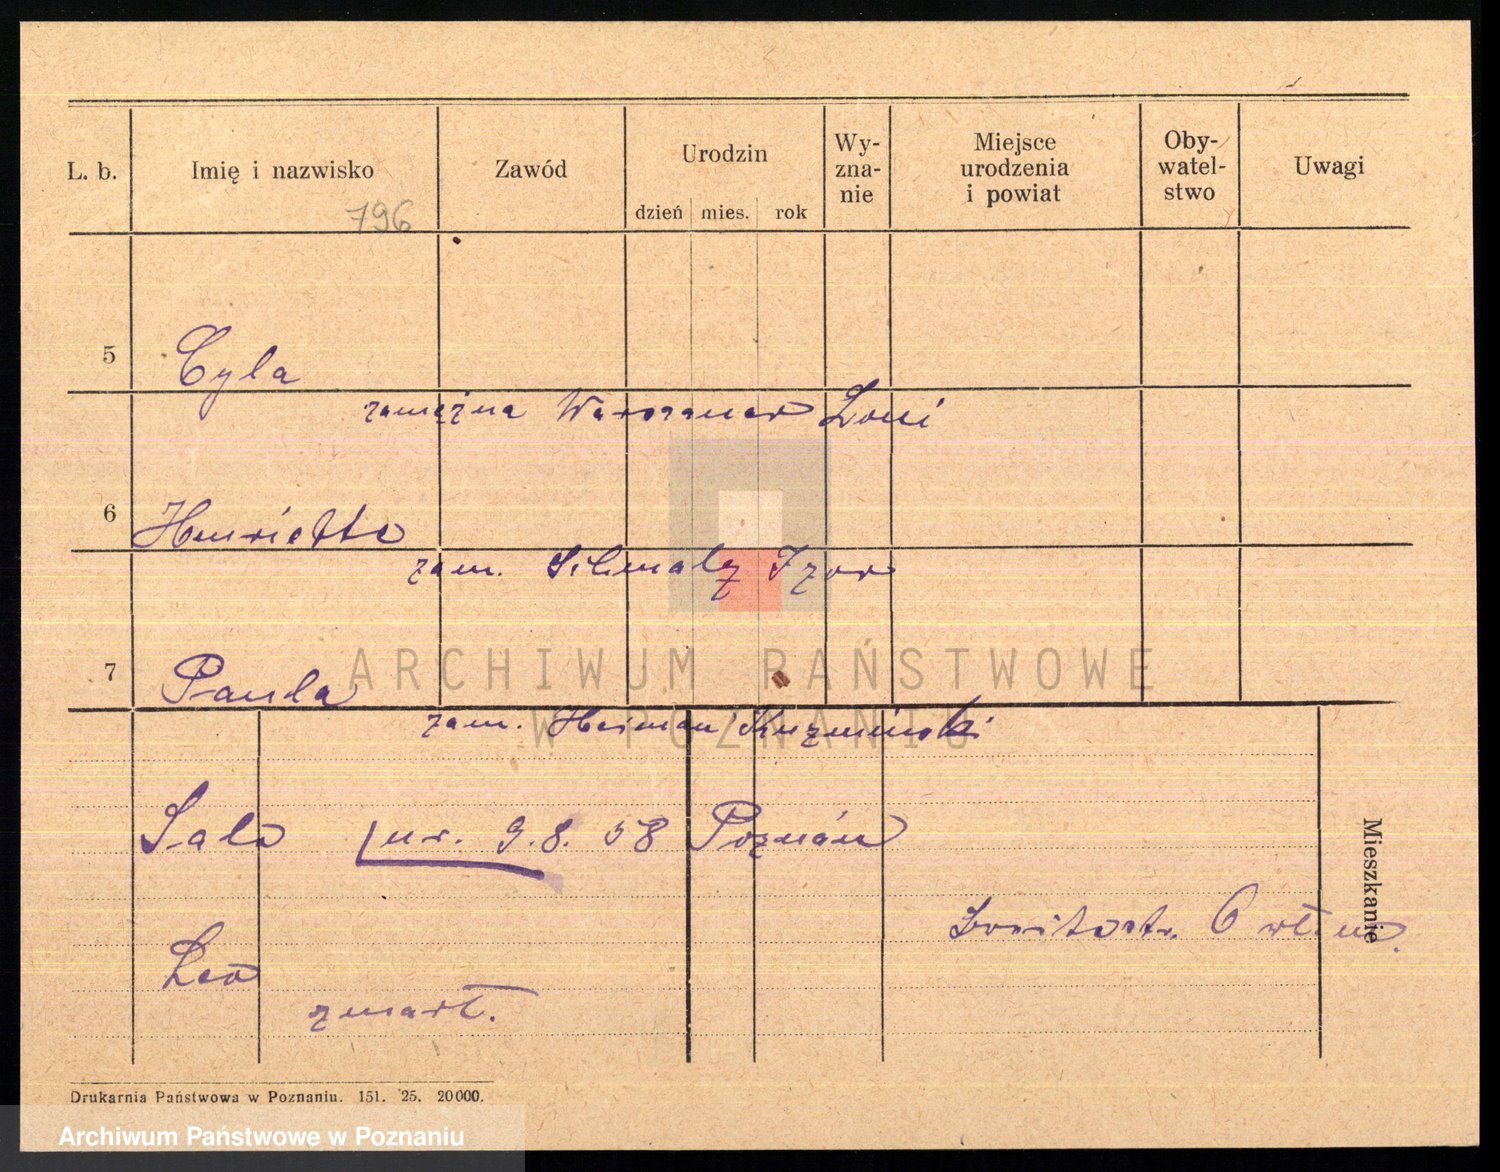 L. b. Imię i nazwisko Zawód Urodzin Wy-zna-nie Miejsce urodzenia i powiat Oby-watel-stwo Uwagi
dzień mies. rok
796
5 Cyla
zamężna Warszauer Loui
6 Henriette
zam. Schmalz Izor
7 Paula
zam. Heiman Kuzminski
Salo ur. 9.8. 58 Poznań
Mieszkanie
6 wł. m.
Leo
zmarł.
Drukarnia Państwowa w Poznaniu. 151. 25. 20000.
ARCHIWUM PAŃSTWOWE
W POZNANIU
Archiwum Państwowe w Poznaniu